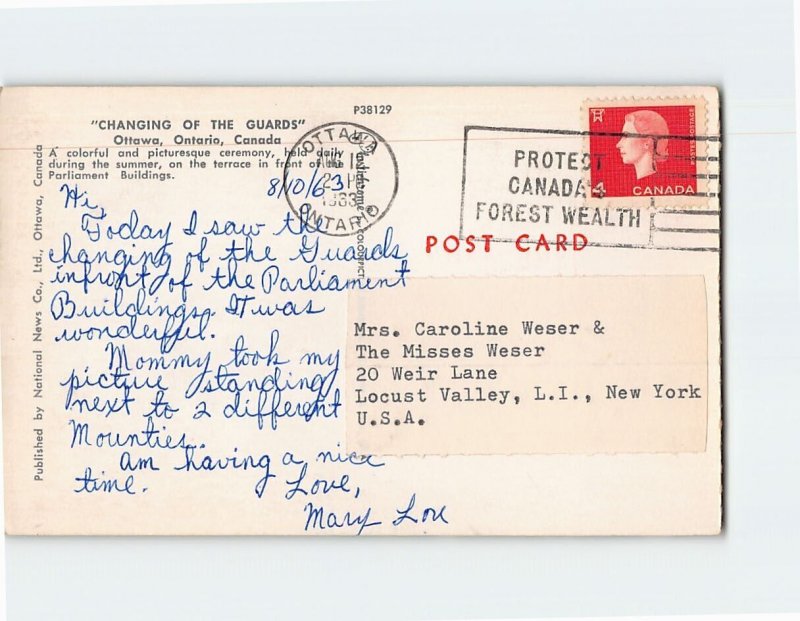 P38129
"CHANGING OF THE GUARDS"
Ottawa, Ontario, Canada
A colorful and picturesque ceremony, held daily
during the summer, on the terrace in front of the
Parliament Buildings.
Published by National News Co., Ltd., Ottawa, Canada
OTTAWA
1963
ONTARIO
PROTECT
CANADA'S
FOREST WEALTH
POSTES POSTAGE
4 CANADA
POST CARD
8/10/63
Hi,
Today I saw the
changing of the Guards
infront of the Parliament
Buildings. It was
wonderful.
Mommy took my
picture standing
next to 2 different
Mounties.
Am having a nice
time.
Love,
Mary Lou
Mrs. Caroline Weser &
The Misses Weser
20 Weir Lane
Locust Valley, L.I., New York
U.S.A.